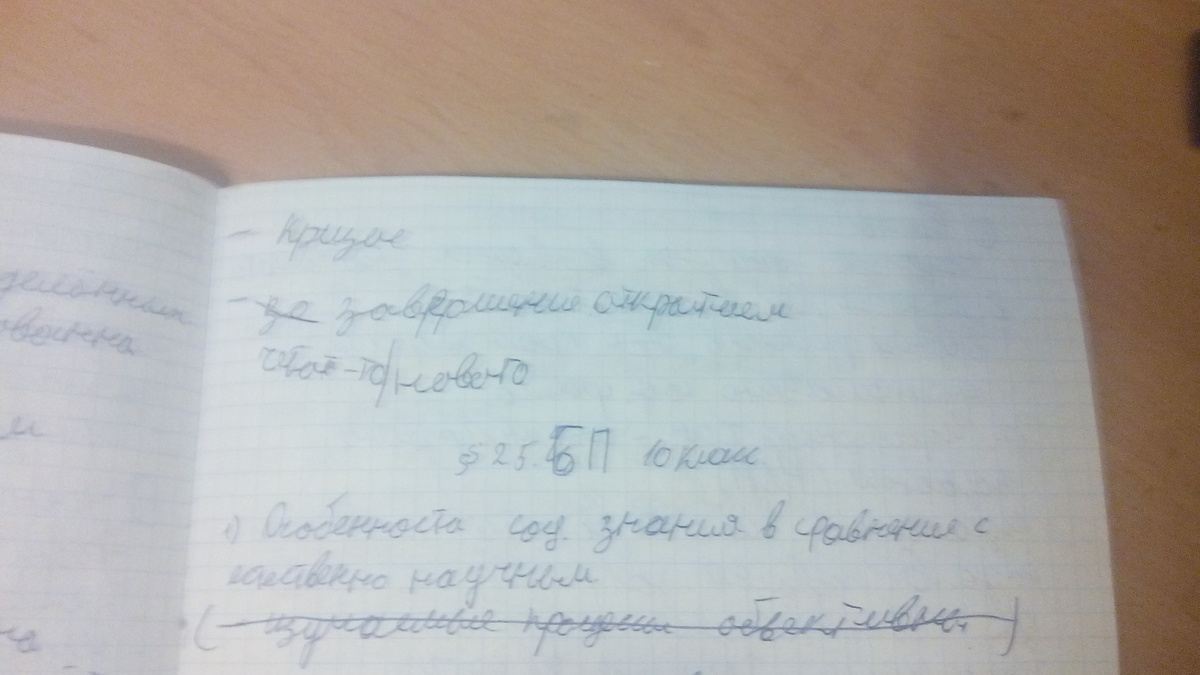 - Кризис
- за завершение открытием
чего-то нового
§ 25. БП 10 класс
1) Особенности соц. знания в сравнении с
естественно научным
(- изучаемые процессы объективны.)